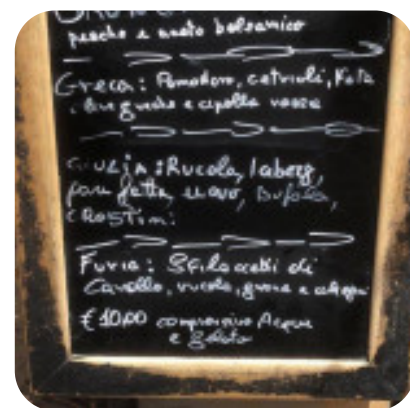 pesche e aceto balsamico
Greca: Pomodoro, cetrioli, Feta
, olive greche e cipolla rossa
GIULIA: Rucola, Iaberg,
uovo, Bufala,
CROSTINI
Furia: Sfilaccetti di
Cavallo, rucola, grana e
€ 10,00 comprensivo Acqua
e gelato